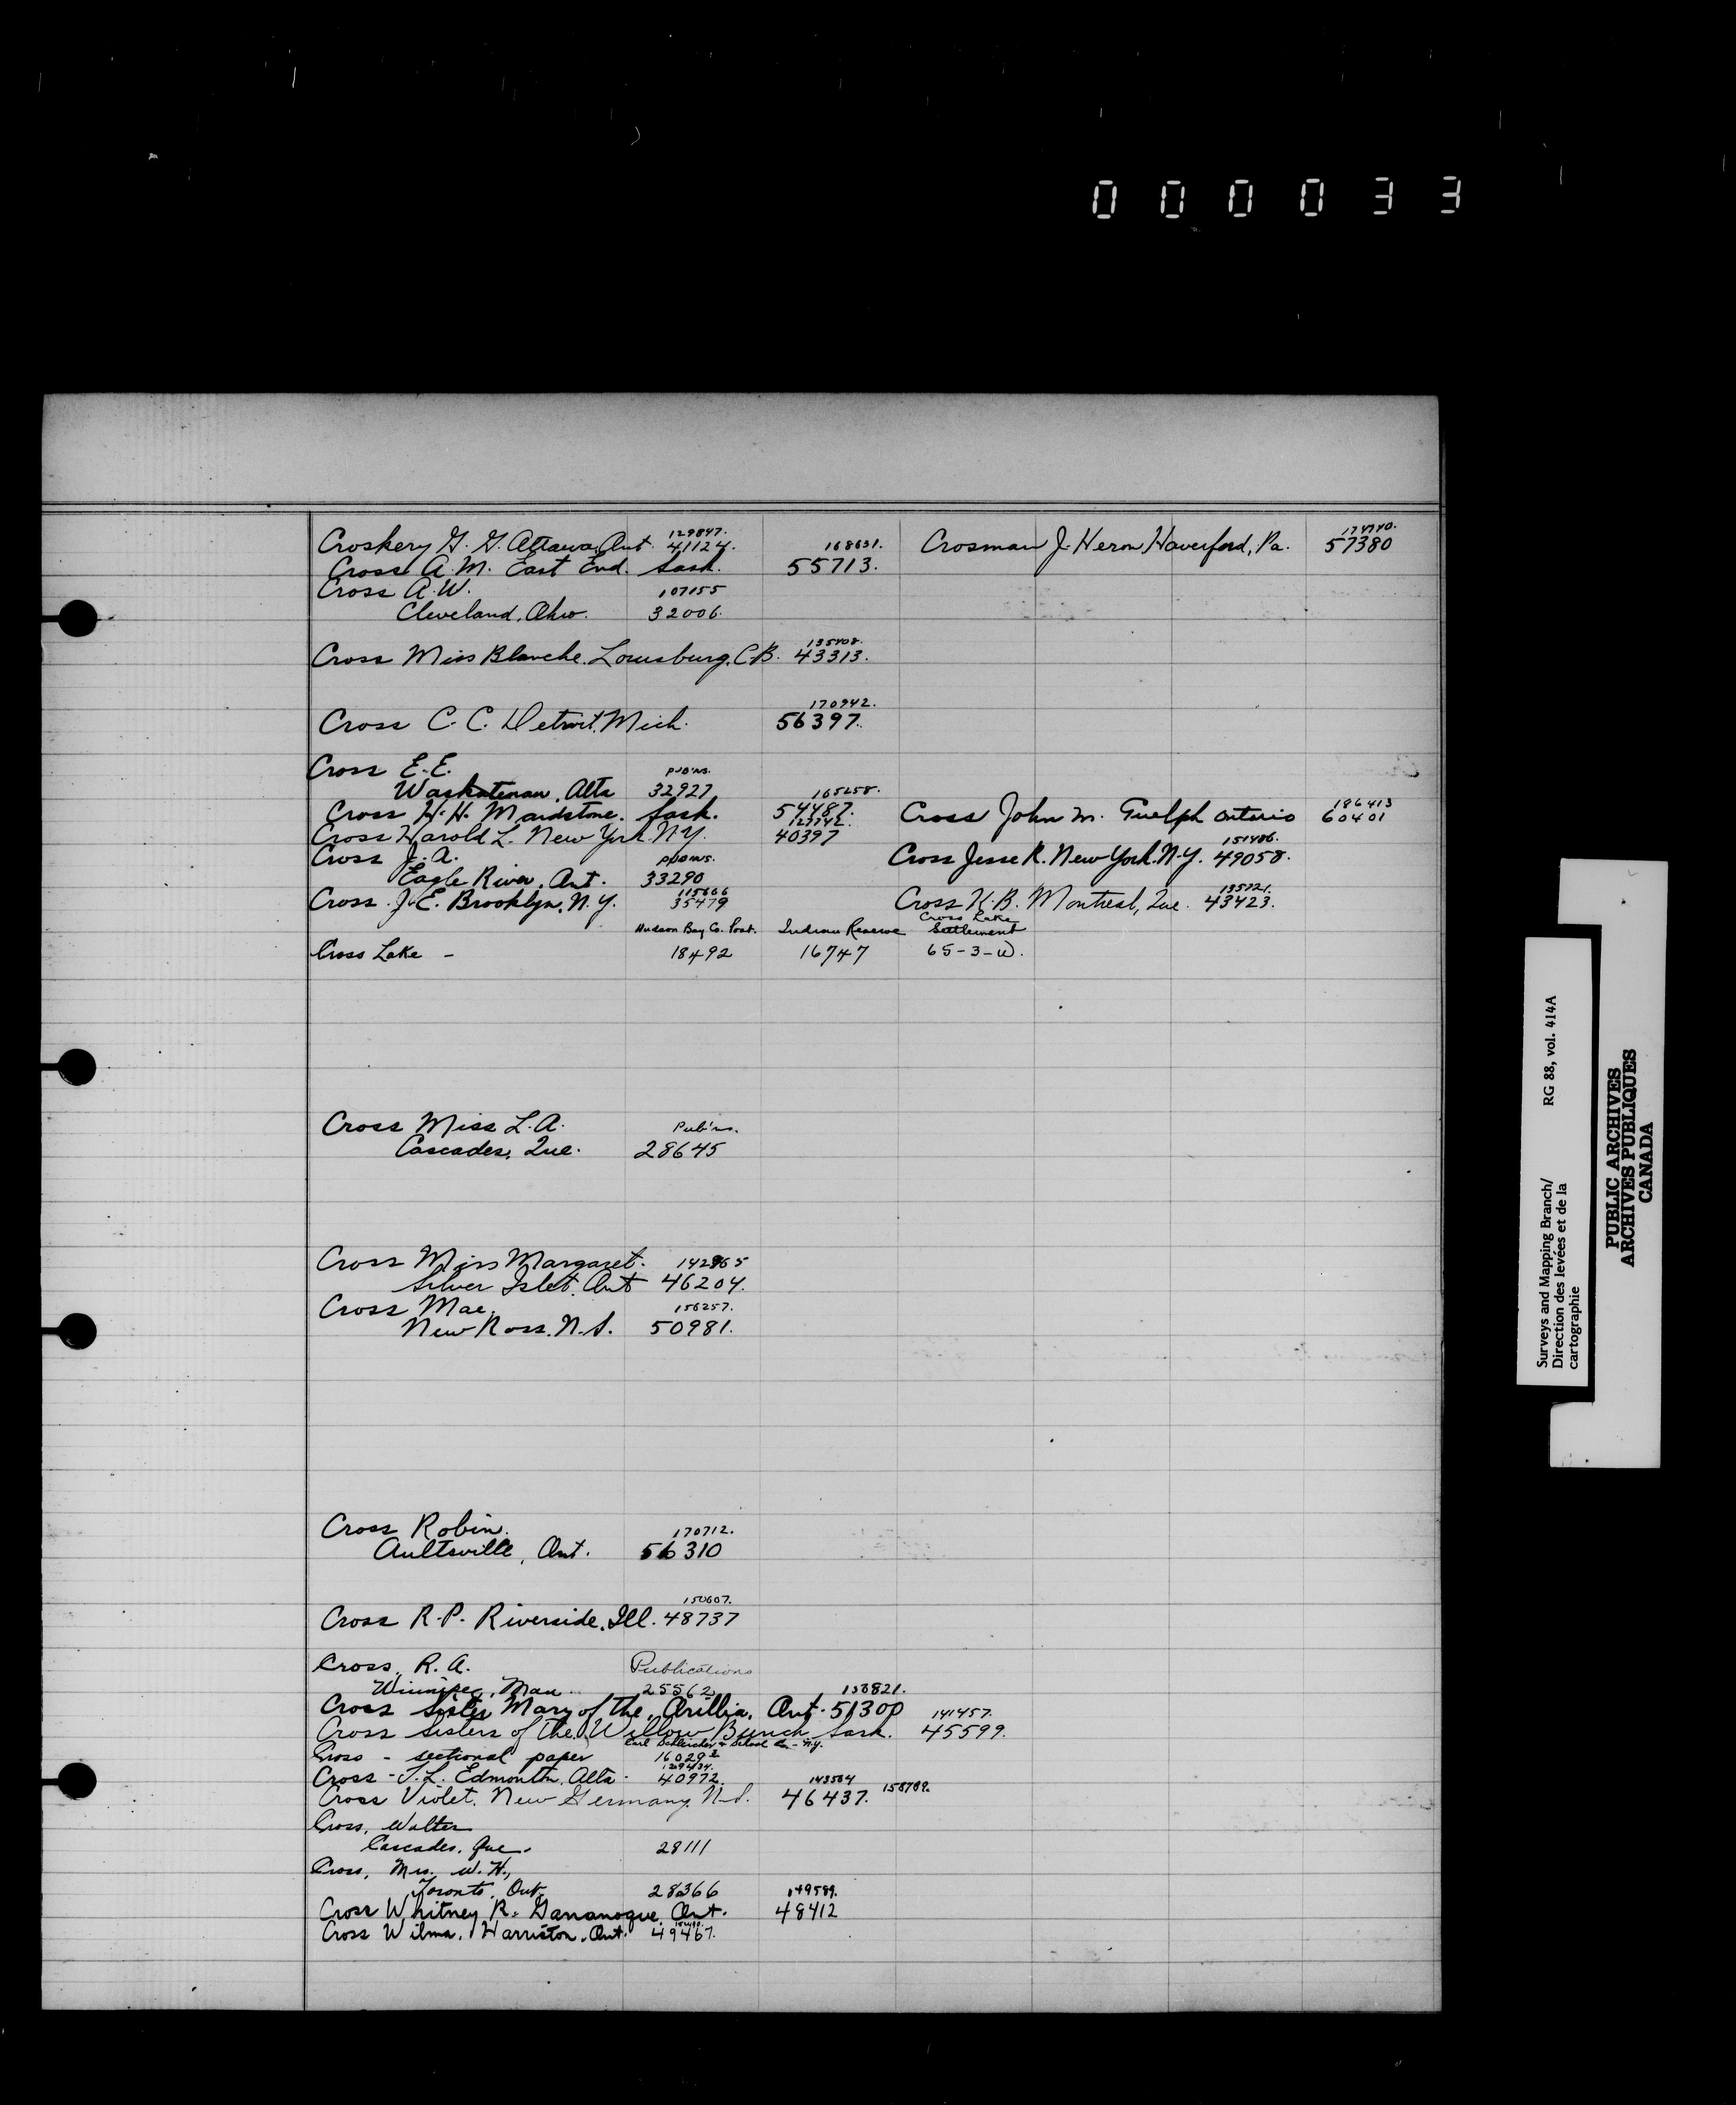 000033
129847. 168631. 174740.
Croskery G. G. Ottawa, Ont. 41124. Crosman J. Heron Haverford, Pa. 57380
Cross A. M. East End. Sask. 55713.
Cross A. W. 107155
Cleveland, Ohio. 32006.
135408.
Cross Miss Blanche. Louisburg, C.B. 43313.
170942.
Cross C. C. Detroit, Mich. 56397.
Cross E. E. Pub'ns.
Waskatenau, Alta 32927 165258. 186413
Cross H. H. Maidstone. Sask. 54487. Cross John M. Guelph Ontario 60401
Cross Harold L. New York N.Y. 40397 151486.
Cross J. A. Pub'ns. Cross Jesse R. New York. N.Y. 49058.
Eagle River, Ont. 33290
115666 135721.
Cross J. E. Brooklyn, N.Y. 35479 Cross K. B. Montreal, Que. 43423.
Cross Lake
Hudson Bay Co. Post. Indian Reserve Settlement
Cross Lake - 18492 16747 65-3-W.
Cross Miss L. A. Pub'ns.
Cascades, Que. 28645
Cross Miss Margaret. 142865
Silver Islet. Ont 46204.
Cross Mae. 156257.
New Ross. N.S. 50981.
Cross Robin. 170712.
Aultsville, Ont. 56310
150607.
Cross R. P. Riverside, Ill. 48737
Cross, R. A. Publications
Winnipeg, Man. 25562 158821.
Cross Sister Mary of the, Orillia, Ont. 51300 141457.
Cross Sisters of the. Willow Bunch Sask. 45599.
Cross - sectional paper 16029
129434.
Cross - T. L. Edmonton, Alta. 40972 143564
Cross Violet. New Germany. N.S. 46437. 158789.
Cross, Walter
Cascades, Que. 28111
Cross, Mrs. W. H.,
Toronto, Ont. 28366 149589.
Cross Whitney R. Gananoque Ont. 48412
Cross Wilma. Harriston, Ont. 49467.
Surveys and Mapping Branch/ RG 88, vol. 414A
Direction des levées et de la
cartographie
PUBLIC ARCHIVES
ARCHIVES PUBLIQUES
CANADA